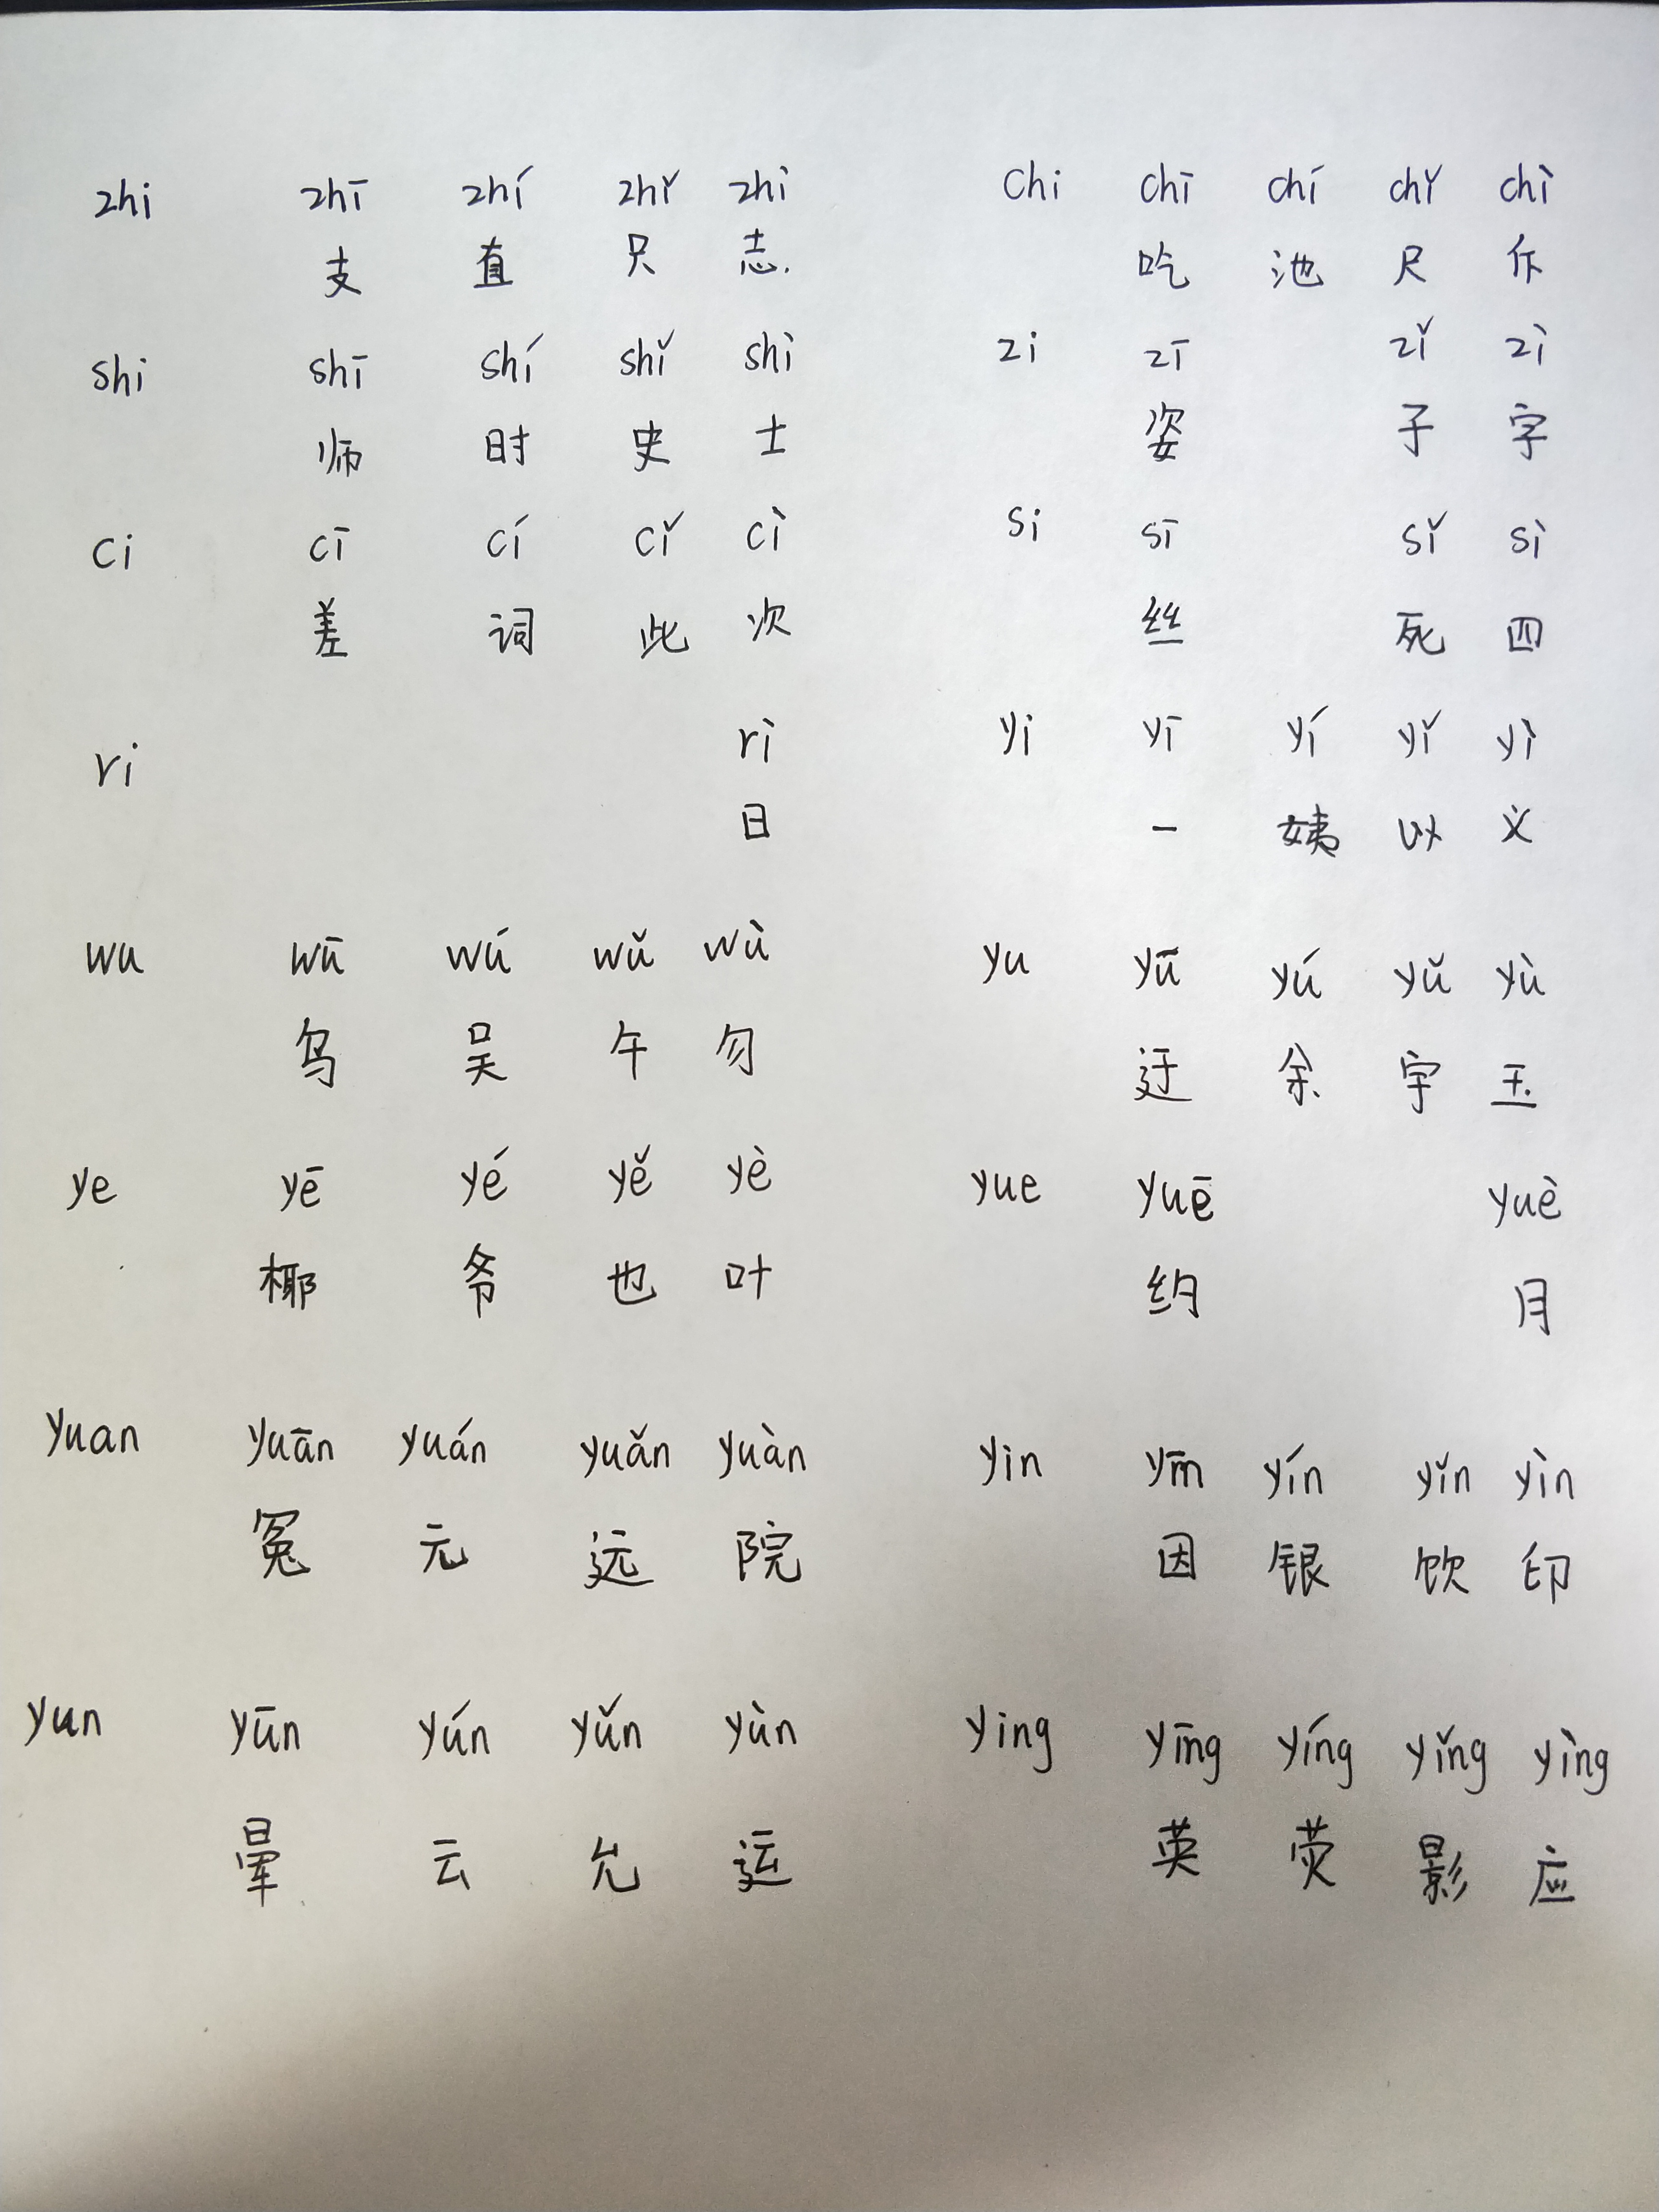 zhi zhī zhí zhǐ zhì chi chī chí chǐ chì
支 直 只 志. 吃 池 尺 斥
shi shī shí shǐ shì zi zī zǐ zì
师 时 史 士 姿 子 字
ci cī cí cǐ cì si sī sǐ sì
差 词 此 次 丝 死 四
ri rì yi yī yí yǐ yì
日 一 姨 以 义
wu wū wú wǔ wù yu yū yú yǔ yù
乌 吴 午 勿 迂 余 宇 玉
ye yē yé yě yè yue yuē yuè
椰 爷 也 叶 约 月
yuan yuān yuán yuǎn yuàn yin yīn yín yǐn yìn
冤 元 远 院 因 银 饮 印
yun yūn yún yǔn yùn ying yīng yíng yǐng yìng
晕 云 允 运 英 荧 影 应